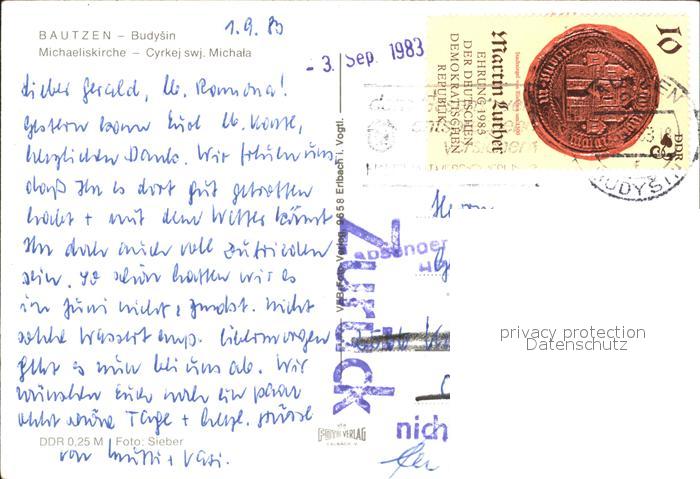 BAUTZEN – Budyšin
Michaeliskirche – Cyrkej swj. Michała
1.9.83
- 3. Sep. 1983
Lieber Gerald, lb. Ramona!
Gestern kam Eure lb. Karte,
herzlichen Dank. Wir freuen uns,
daß Ihr es dort gut getroffen
habt + mit dem Wetter könnt
Ihr doch auch voll zufrieden
sein. So schön hatten wir es
im Juni nicht, zumindest nicht
solche Wassertemp. Übermorgen
geht es nun bei uns ab. Wir
wünschen Euch noch ein paar
schöne Tage + herzl. Grüsse
von Mutti + Vati.
DDR 0,25 M Foto: Sieber
VEB Foto-Verlag 9658 Erlbach i. Vogtl.
FOTO VERLAG
10
Martin Luther
EHRUNG 1983
DER DEUTSCHEN
DEMOKRATISCHEN
REPUBLIK
DDR
BUDYŠIN
Zurück
Absender
nich
privacy protection
Datenschutz